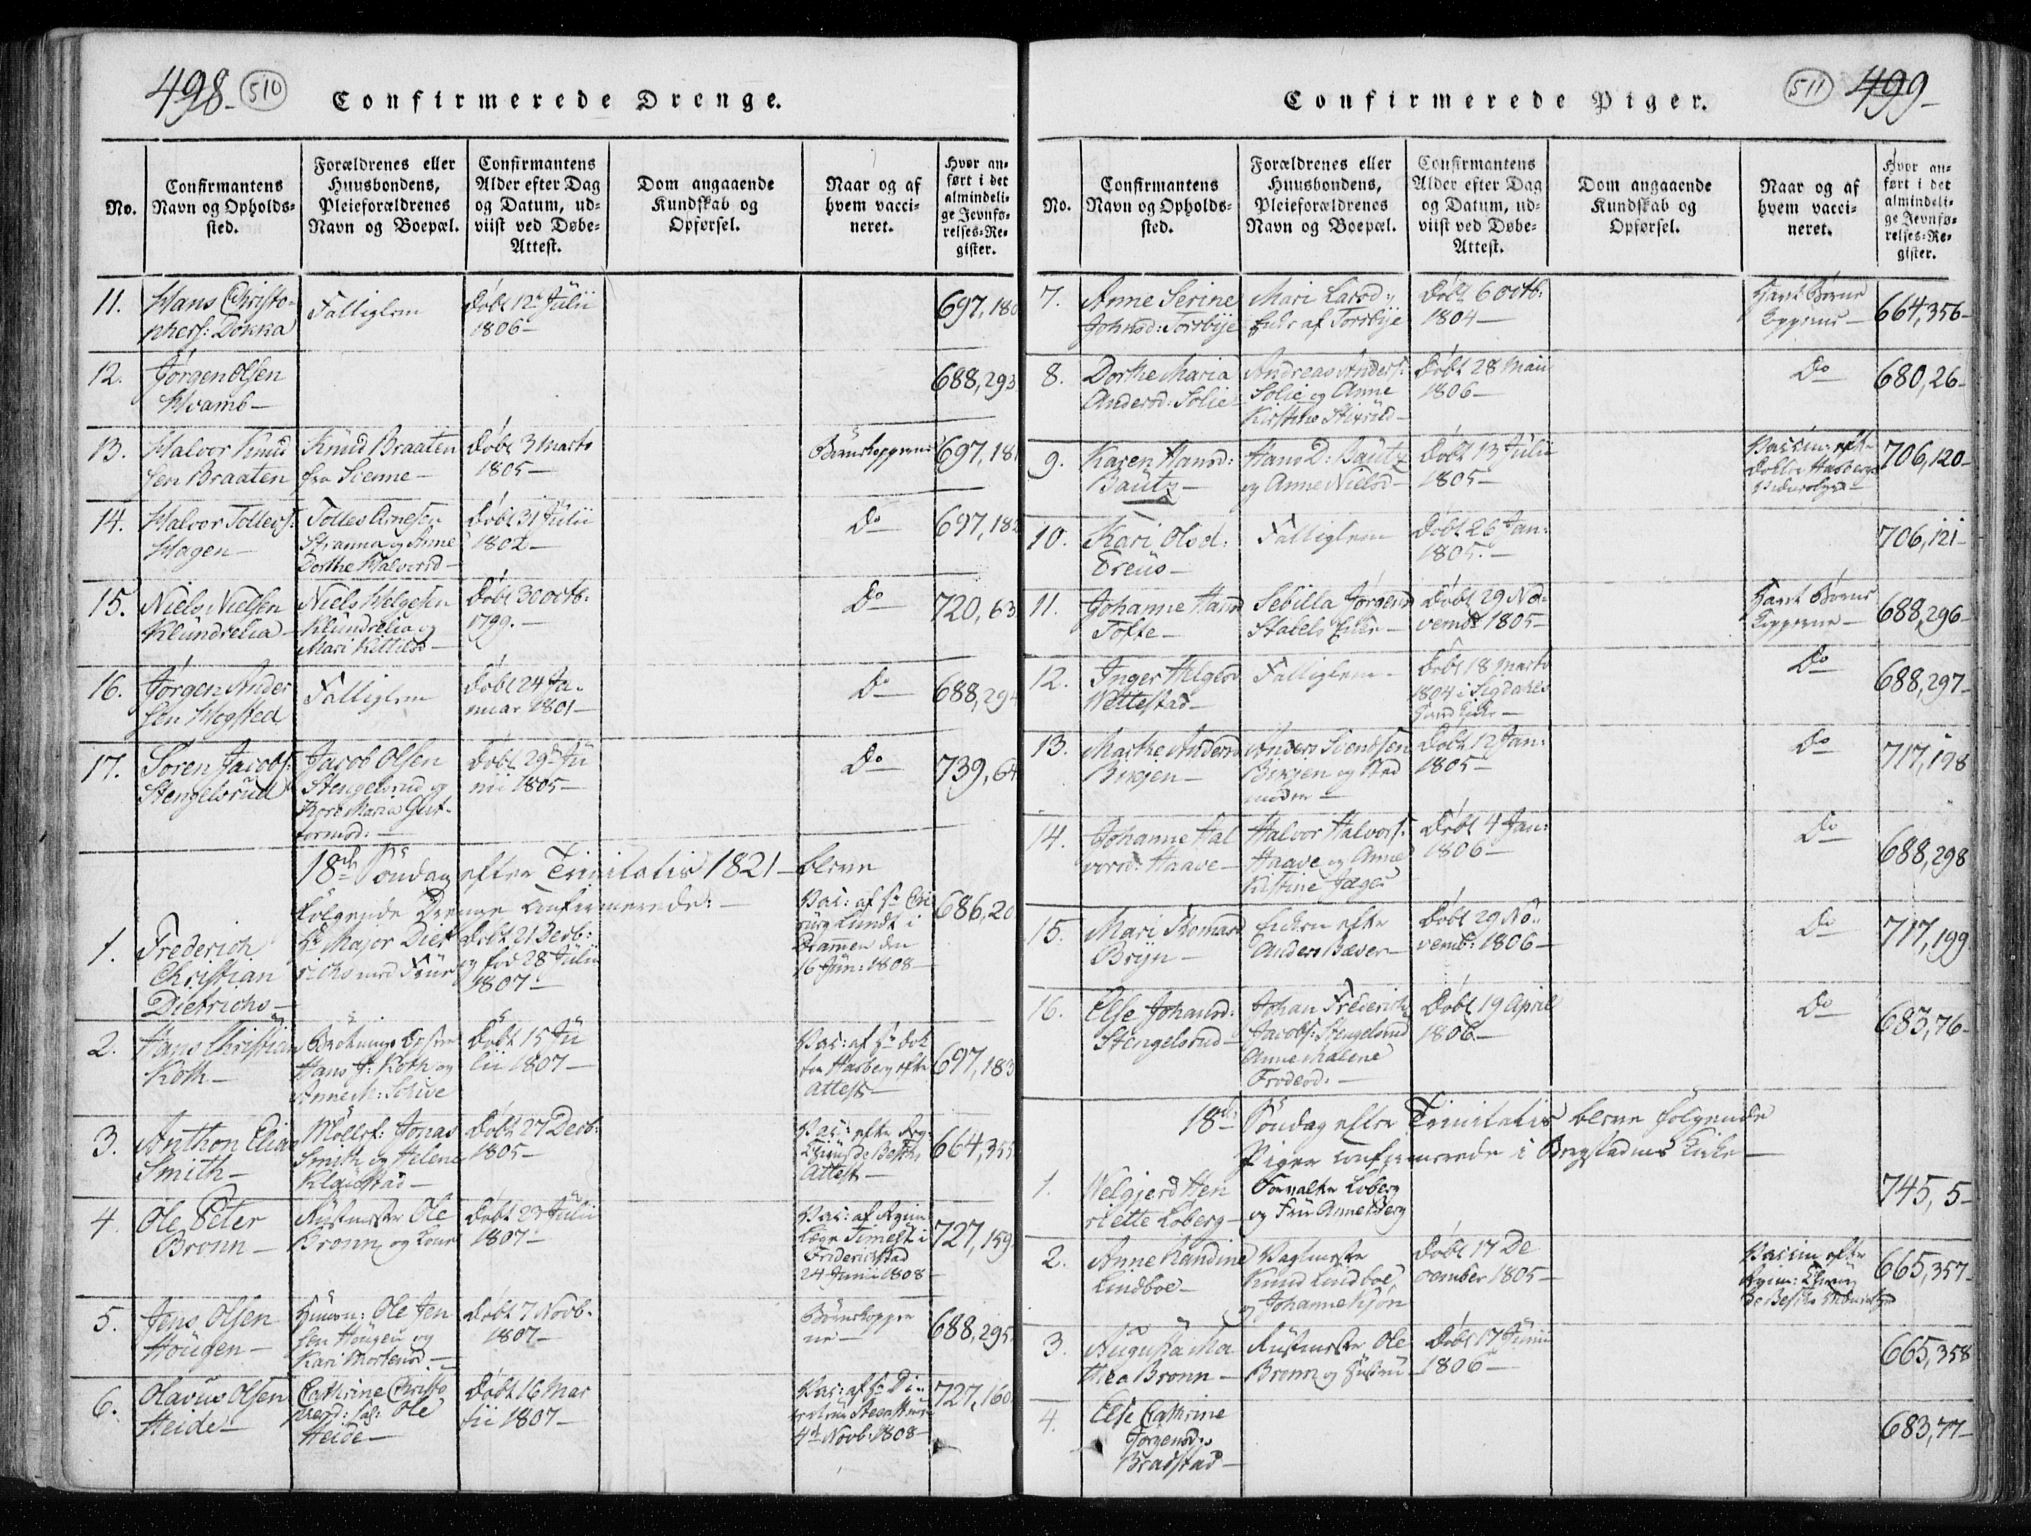 498-
510
Confirmerede Drenge.
No.
Confirmantens
Navn og Opholds-
sted.
Forældrenes eller
Huusbondens,
Pleieforældrenes
Navn og Boepæl.
Confirmantens
Alder efter Dag
og Datum, ud-
viist ved Døbe-
Attest.
Dom angaaende
Kundskab og
Opførsel.
Naar og af
hvem vacci-
neret.
Hvor an-
ført i det
almindeli-
ge Jevnfø-
relses-Re-
gister.
11.
Hans Christo-
phers: Dokka
Falliglem
Døbt 12te Julii
1806-
697,180
12.
Jørgen Olsen
Hvamb-
688,293
13.
Halvor Knud
sen Braaten
Knud Braaten
fra Siemne-
Døbt 3 Marts
1805-
Børnekopperne
697,181
14.
Halvor Tollefs:
Hagen-
Tollef Arnesen
Stranna og Anne
Dorthe Halvorsd-
Døbt 31 Julii
1802-
Do
697,182
15.
Niels Nielsen
Klundrelia-
Niels Helgesen
Klundrelia og
Mari Kittilsd-
Døbt 30 octb:
1799.-
Do
720,63
16.
Jørgen Ander
sen Hogsted
Falliglem
Døbt 24 Ja-
nuar 1801-
Do
688,294
17.
Søren Jacobs:
Stengelsrud
Jacob Olsen
Stengelsrud og
Maria Gut-
tormsd:-
Døbt 29de Ju
nii 1805-
Do
739,64
18de Søndag efter Trinitatis 1821- bleve
følgende Drenge Confirmerede:-
1.
Frederich
Christian
Dietrichs-
Hr Major Diet
richs med Frue
Døbt 21 Decb:
og fød 28 Julii
1807-
Vac: af Hr Chi
rurg Lundt i
Dramen den
16 Jun: 1808-
686,20
2.
Hans Christian
Koth-
Hans H: Koth og
Anne M: Schive
Døbt 15 Ju
lii 1807-
Vac: af Hr Dok
tor Hasberg efter
attest-
697,183
3.
Anthon Elias
Smith-
Jonas
Smith og Helene
Klouvstad-
Døbt 27 Decb:
1805-
Vac: efter
attest-
664,355
4.
Ole Peter
Bronn-
Rustmester Ole
Bronn og Kone
Døbt 23 Julii
1807-
Vac: af
i
Frederichstad
24 Junii 1808-
727,159
5.
Jens Olsen
Hougen-
Huusm: Ole Jen
sen Hougen og
Kari Mortensd.-
Døbt 7 Novb-
1807-
Børnekopper
ne-
688,295
6.
Olavus Olsen
Heide-
Cathrine Christo
phersd: sal: Ole
Heide-
Døbt 16 Mar
tii 1807-
Vac: af Hr
4de Novb: 1808-
727,160
511
499-
Confirmerede Piger.
No.
Confirmantens
Navn og Opholds-
sted.
Forældrenes eller
Huusbondens,
Pleieforældrenes
Navn og Boepæl.
Confirmantens
Alder efter Dag
og Datum, ud-
viist ved Døbe-
Attest.
Dom angaaende
Kundskab og
Opførsel.
Naar og af
hvem vacci-
neret.
Hvor an-
ført i det
almindeli-
ge Jevnfø-
relses-Re-
gister.
7.
Anne Serine
Johnsd: Torsbye
Mari Larsd:
Enke af Torsbye
Døbt 6 octb:
1804-
Havt Børne
Kopperne-
664,356-
8.
Dorthe Maria
Andersd: Solie
Andreas Anders:
Solie og Anne
Kirstine Stixrud-
Døbt 28 Maii
1806-
Do
680,26-
9.
Karen Hansd:
Bautz-
Hans D: Bautz
og Anne Nielsd-
Døbt 13 Julii
1805-
Vaccin: efter
Doktor Hasbergs
706,120-
10.
Kari Olsd:
Creus-
Falliglem
Døbt 26 Jan:
1805.-
706,121-
11.
Johanne Hansd
Tofte-
Sebilla Jørgensd
Stabels Enke-
Døbt 29 No-
vembr 1805-
Havt Børne
Kopperne-
688,296-
12.
Inger Helgesd
Nettestad-
Falliglem-
Døbt 18 Marts
1804 i Sigdahls
Do
688,297-
13.
Marthe Andersd
Birjen-
Anders Svendsen
Birjen og Sted
moder-
Døbt 12 Jan:
1805-
Do
717,198
14.
Johanne Hal
vorsd: Haave-
Halvor Halvors:
Haave og Anne
Kistine Jæger
Døbt 4 Jan:
1806-
Do
688,298
15.
Mari
Bryn-
Enken efter
Anders Bæver-
Døbt 29 No-
vemb: 1806-
Do
717,199
16.
Else Johansd:
Stengelsrud-
Johan Frederich
Jacobs: Stengelsrud
Anne Malene
Frodesd:-
Døbt 19 April
1806-
Do
683,76-
18de Søndag efter Trinitatis bleve følgende
Piger confirmerede i Bergstadens Kirke-
1.
Welgjerd Hen
riette Loberg-
Forvalter Loberg
og Frue Anne Berg
745,5-
2.
Anne Randine
Lindboe-
Vagtmester
Knud Lindboe,
og Johanne Kjøn
Døbt 17 De
cember 1805-
Vaccin efter
665,357-
3.
Augusta Ma
thea Bronn-
Rustmester Ole
Bronn og Hustru
Døbt 17 Junii
1806-
665,358
4.
Else Cathrine
Jørgensd:
Bradstad-
683,77-